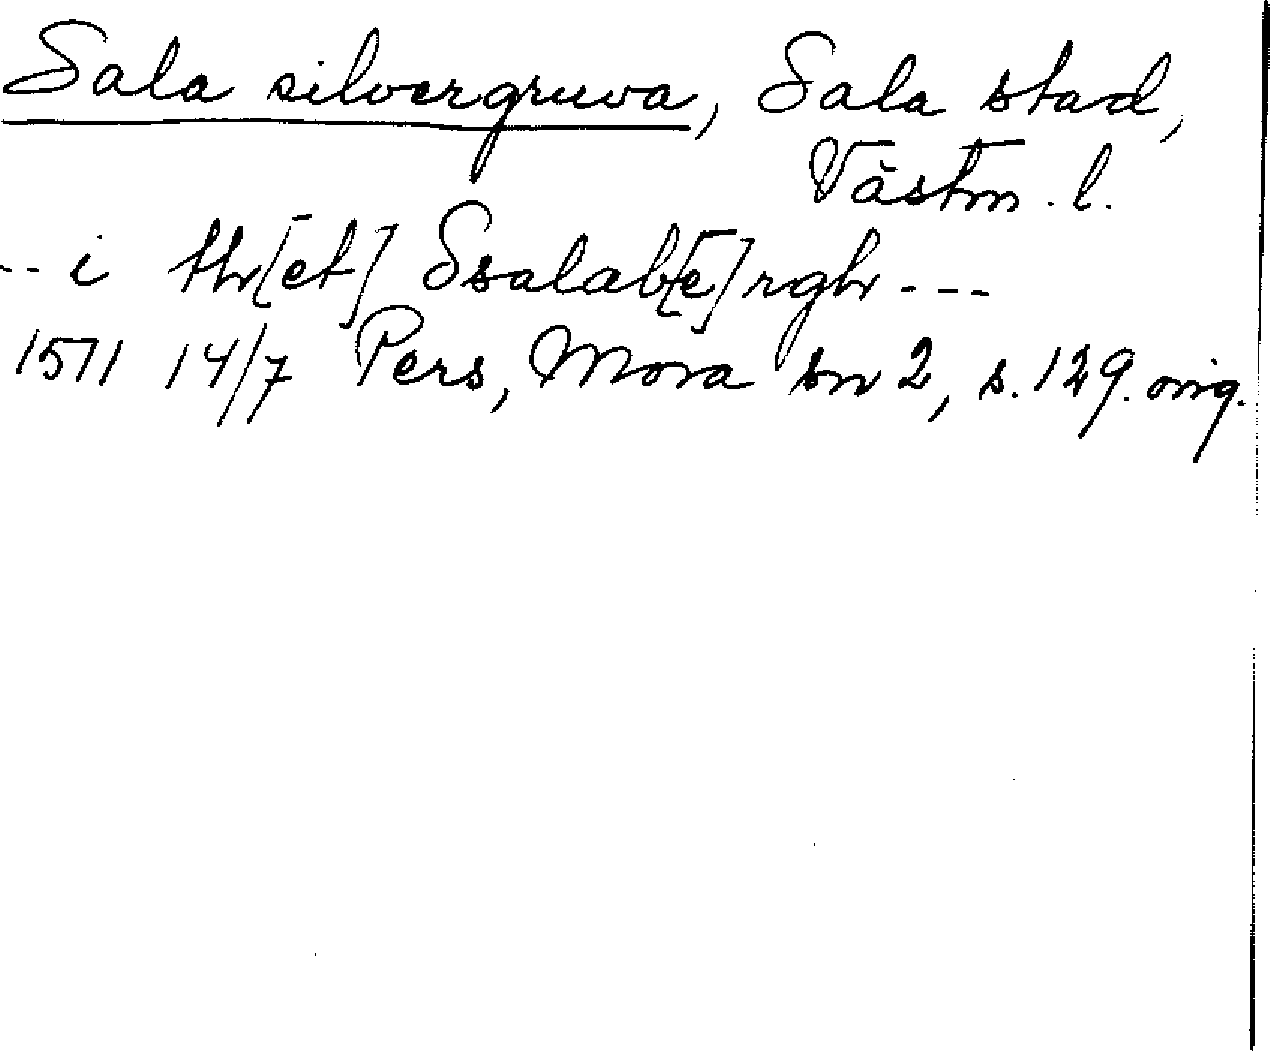 Sala silvergruva, Sala stad,
Västm. l.
-- i th[et] Ssalab[e]rgh ---
1511 14/7 Pers, Mora sn 2, s. 129. orig.